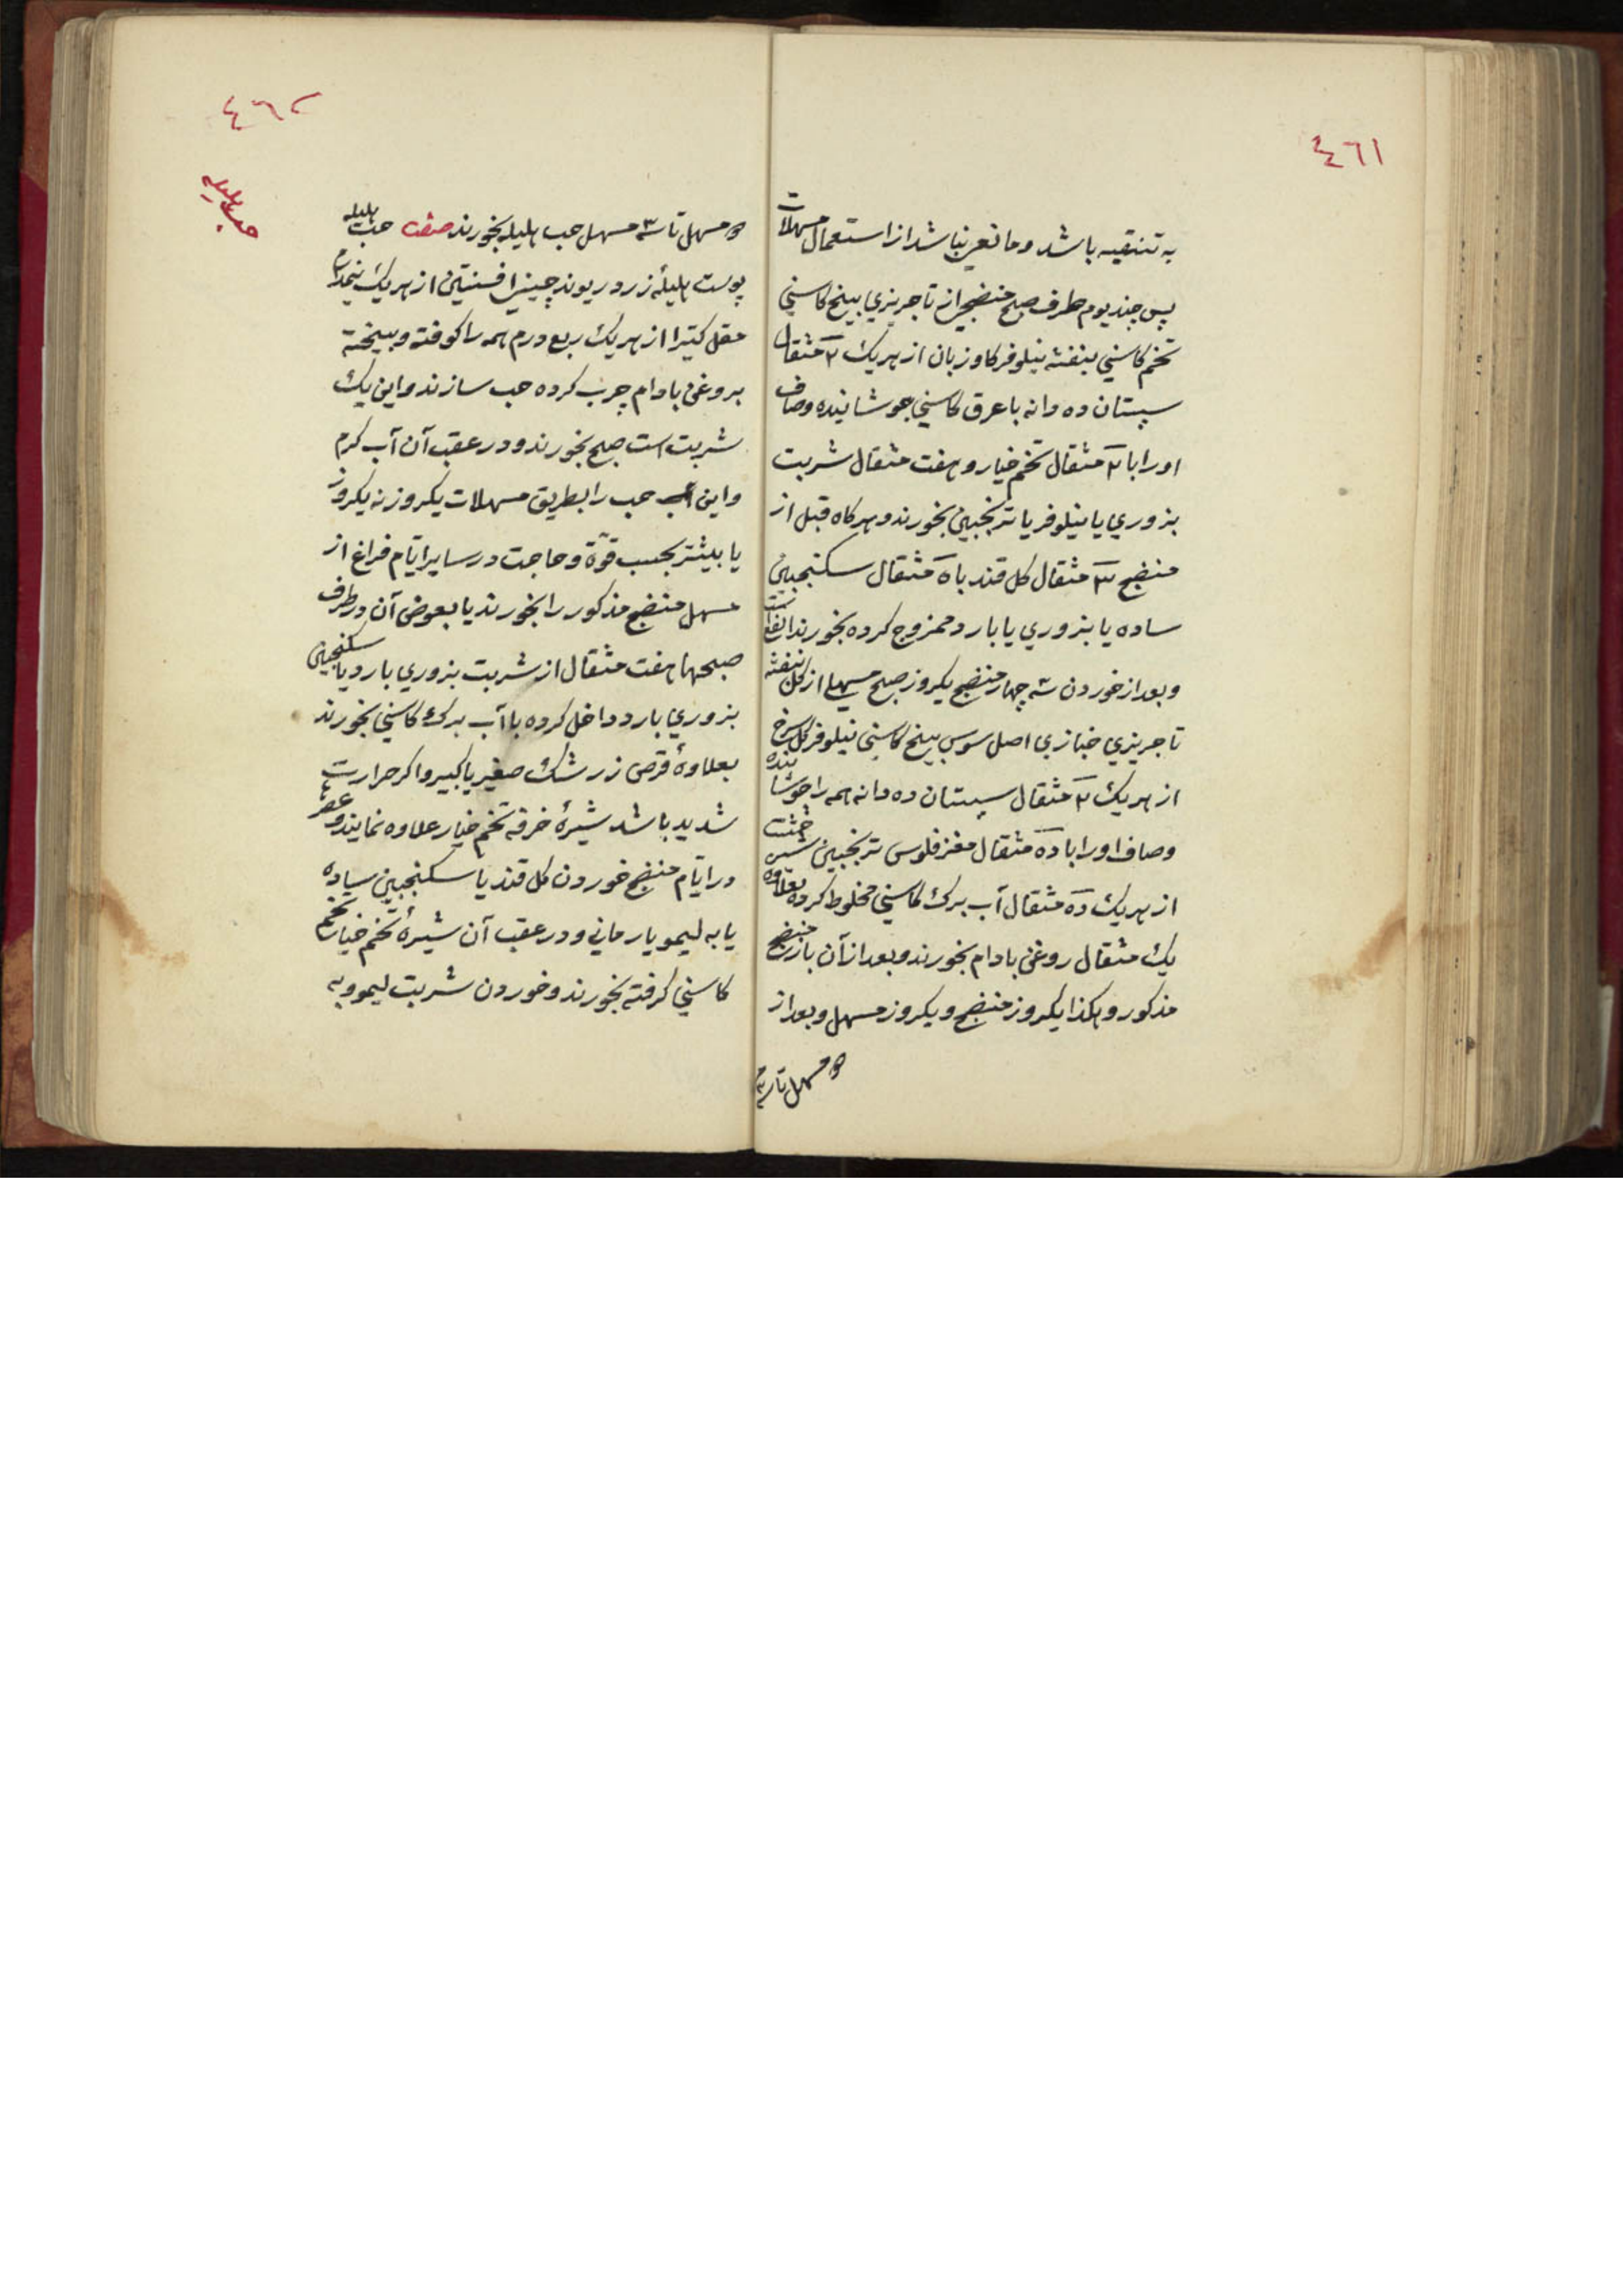 ٤٦١
به تنقیه باشد و مانعی نباشد از استعمال مسهلات
پس چند یوم طرف صبح منضجی از تاجریزي بیخ کاسني
تخم کاسني بنفشه نیلوفر کاوزبان از هریك ٢ مثقال
سپستان ده دانه با عرق کاسني جوشانیده و صاف
اورا با ٢ مثقال تخم خیار و هفت مثقال شربت
بزوري یا نیلوفر یا ترنجبین بخورند و هرکاه قبل از
منضج ٣ مثقال کل قند با ٥ مثقال سکنجبین
ساده یا بزوري یا بارد ممزوج کرده بخورند انفع است
و بعد از خوردن سه چهار منضج یکروز صبح مسهلي از کل بنفشه
تاجریزي خبازي اصل سوس بیخ کاسني نیلوفر کل سرخ
از هریك ٢ مثقال سپستان ده دانه همه را جوشانیده
و صاف اورا با ده مثقال مغز فلوس ترنجبین شیرخشت
از هریك ده مثقال آب برك کاسني مخلوط کرده بعلاوه
یك مثقال روغن بادام بخورند و بعد از آن باز منضج
مذکور و هکذا یکروز منضج و یکروز مسهل و بعد از
مسهل تا سه
٤٦٢
حب هلیله
مسهل تا ٣ مسهل حب هلیله بخورند صفت حب هلیله
پوست هلیلۀ زرد ریوند چیني افسنتین از هریك نیمدرم
مقل کتیرا از هریك ربع درم همه را کوفته و بیخته
بروغن بادام چرب کرده حب سازند و این یك
شربت است صبح بخورند و در عقب آن آب کرم
و این حب را بطریق مسهلات یکروز نه یکروز
یا بیشتر بحسب قوّة و حاجت در سایر ایّام فراغ از
مسهل منضج مذکور را بخورند یا بعوض آن در طرف
صبحها هفت مثقال از شربت بزوري بارد یا سکنجبین
بزوري بارد داخل کرده با آب برك کاسني بخورند
بعلاوۀ قرص زرشك صغیر یا کبیر و اکر حرارت
شدید باشد شیرۀ خرفه تخم خیار علاوه نمایند و عصرها
در ایّام منضج خوردن کل قند یا سکنجبین ساده
یا به لیمو یا رماني و در عقب آن شیرۀ تخم خیار تخم
کاسني کرفته بخورند و خوردن شربت لیمو و به